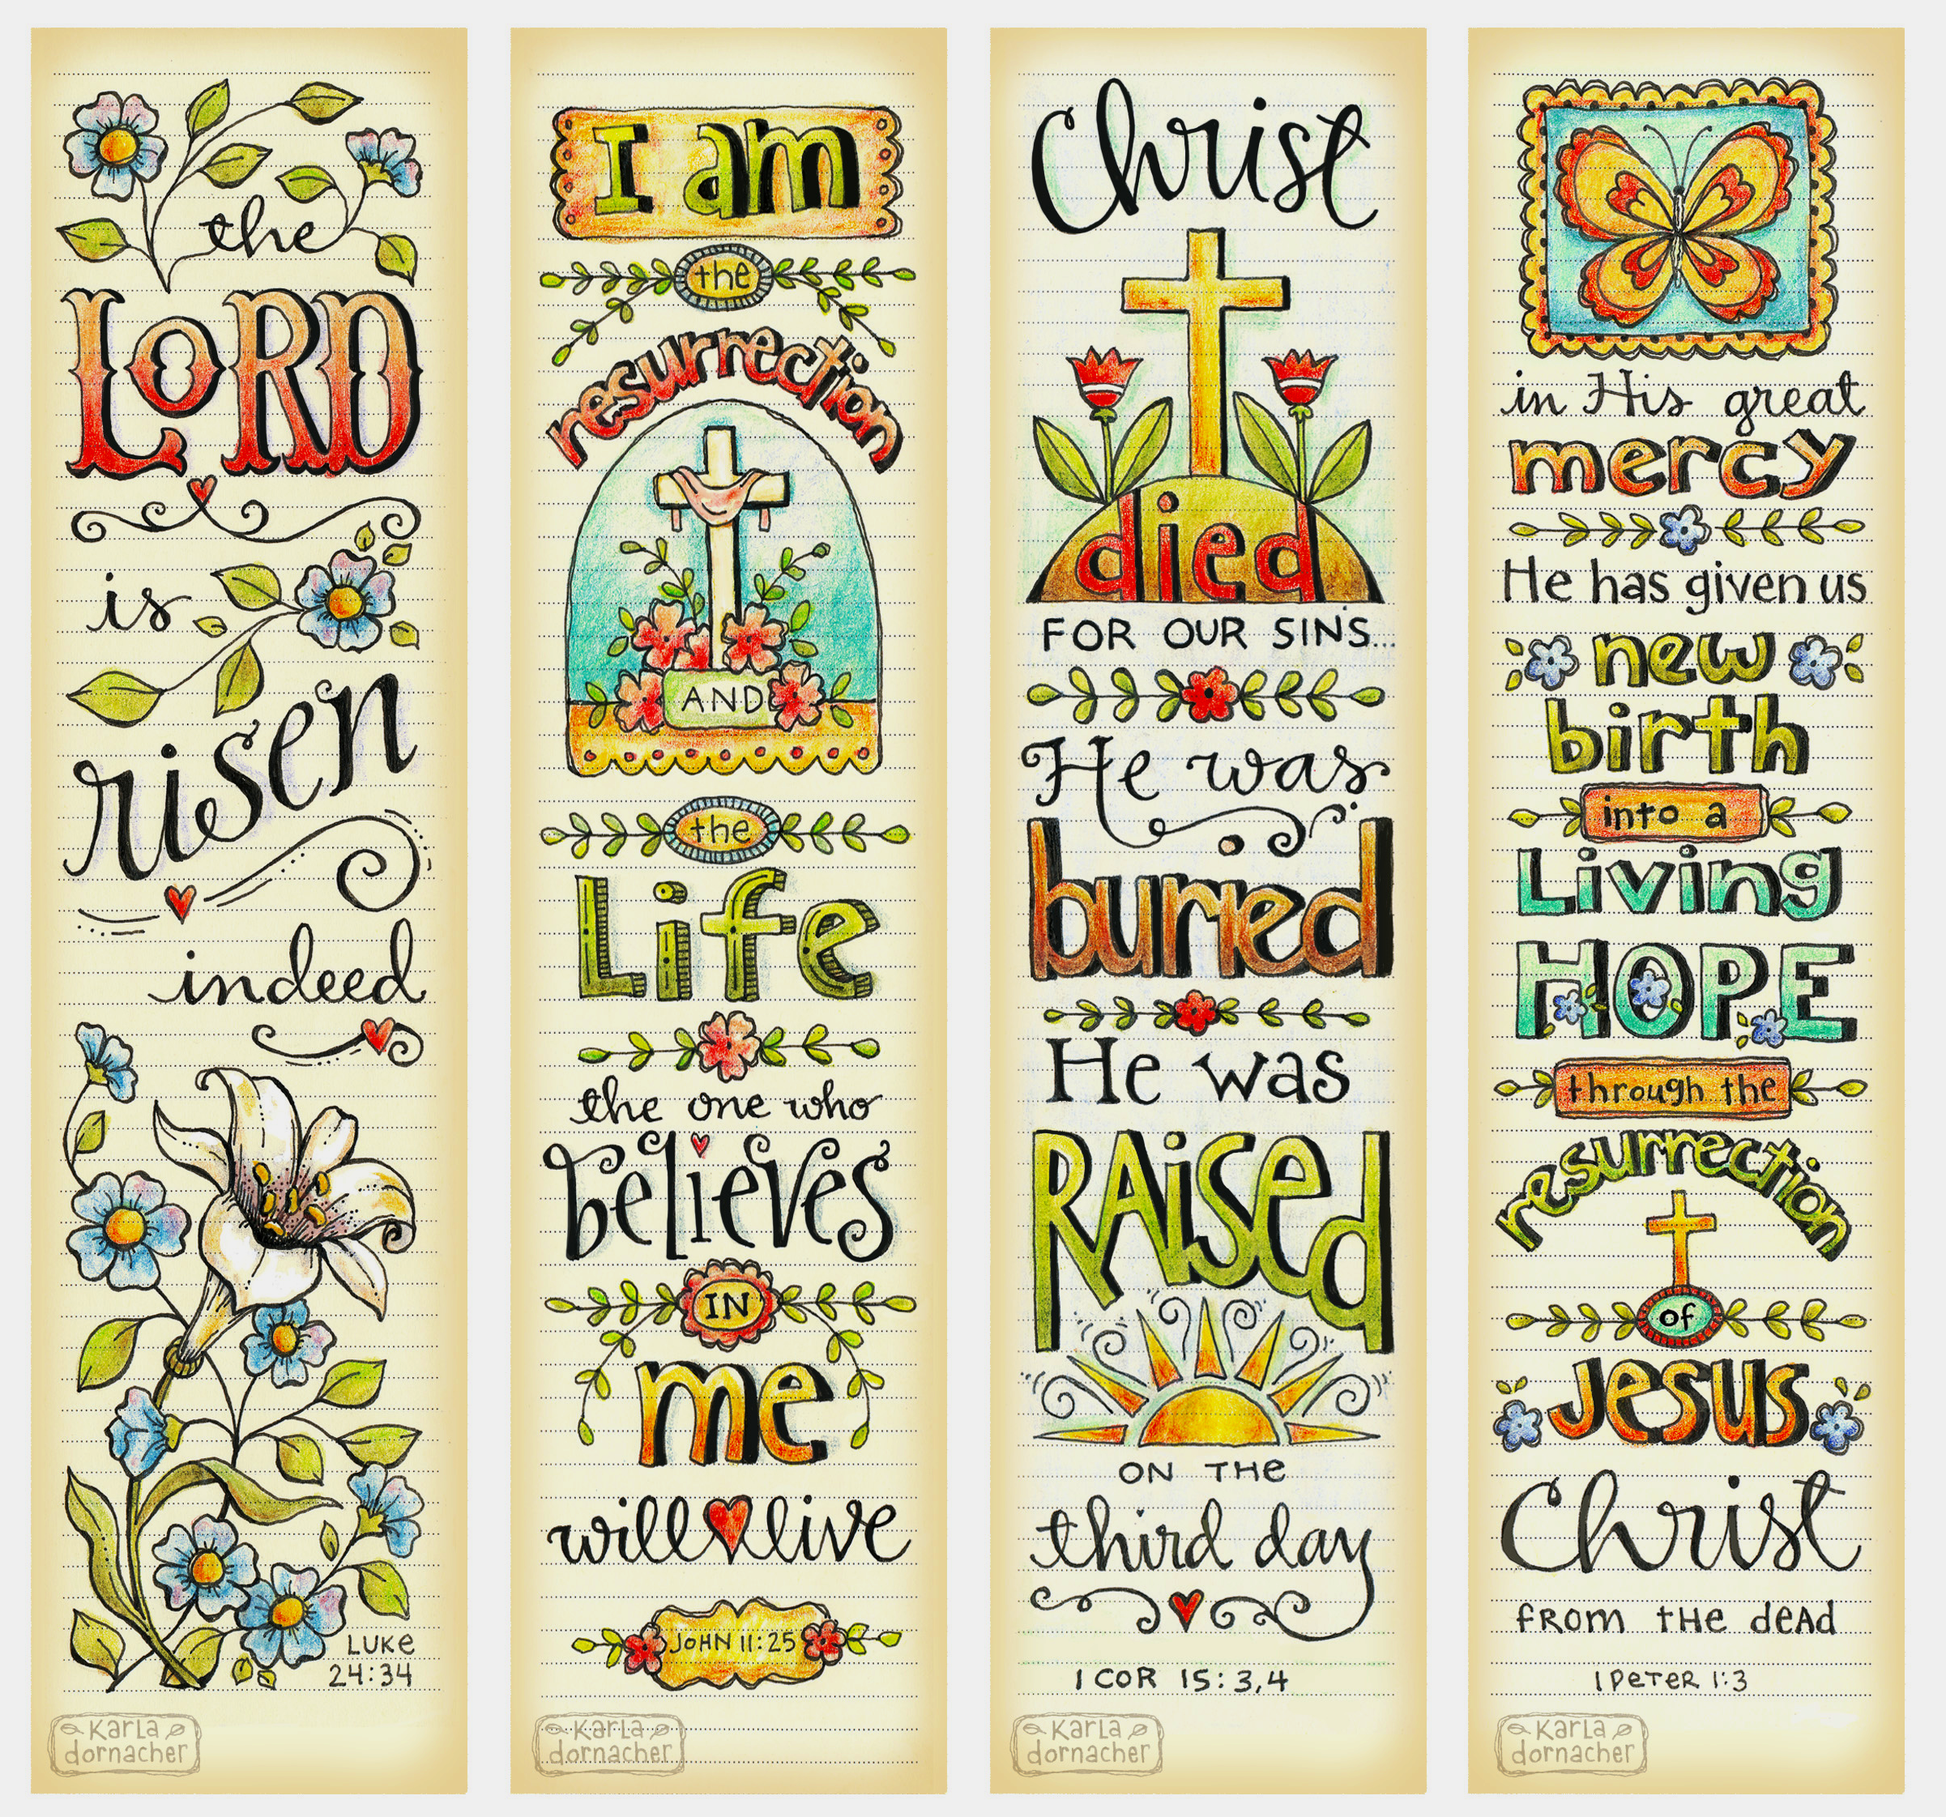 the
LORD
is
risen
indeed
LUKE
24:34
Karla
dornacher
I am
the
resurrection
AND
the
Life
the one who
believes
IN
me
will live
JOHN 11:25
Karla
dornacher
Christ
died
FOR OUR SINS...
He was
buried
He was
RAiSed
ON THe
third day
1 COR 15:3,4
Karla
dornacher
in His great
mercy
He has given us
new
birth
into a
Living
HOPE
through the
resurrection
of
Jesus
Christ
fROM tHe deAd
1 PeTeR 1:3
Karla
dornacher